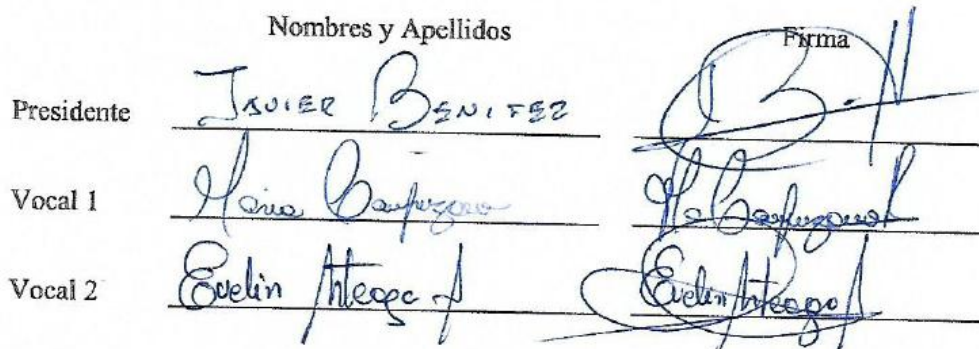 Nombres y Apellidos Firma
Presidente JAVIER BENITEZ
Vocal 1 María
Vocal 2 Evelin Arteaga A Evelin Arteaga A